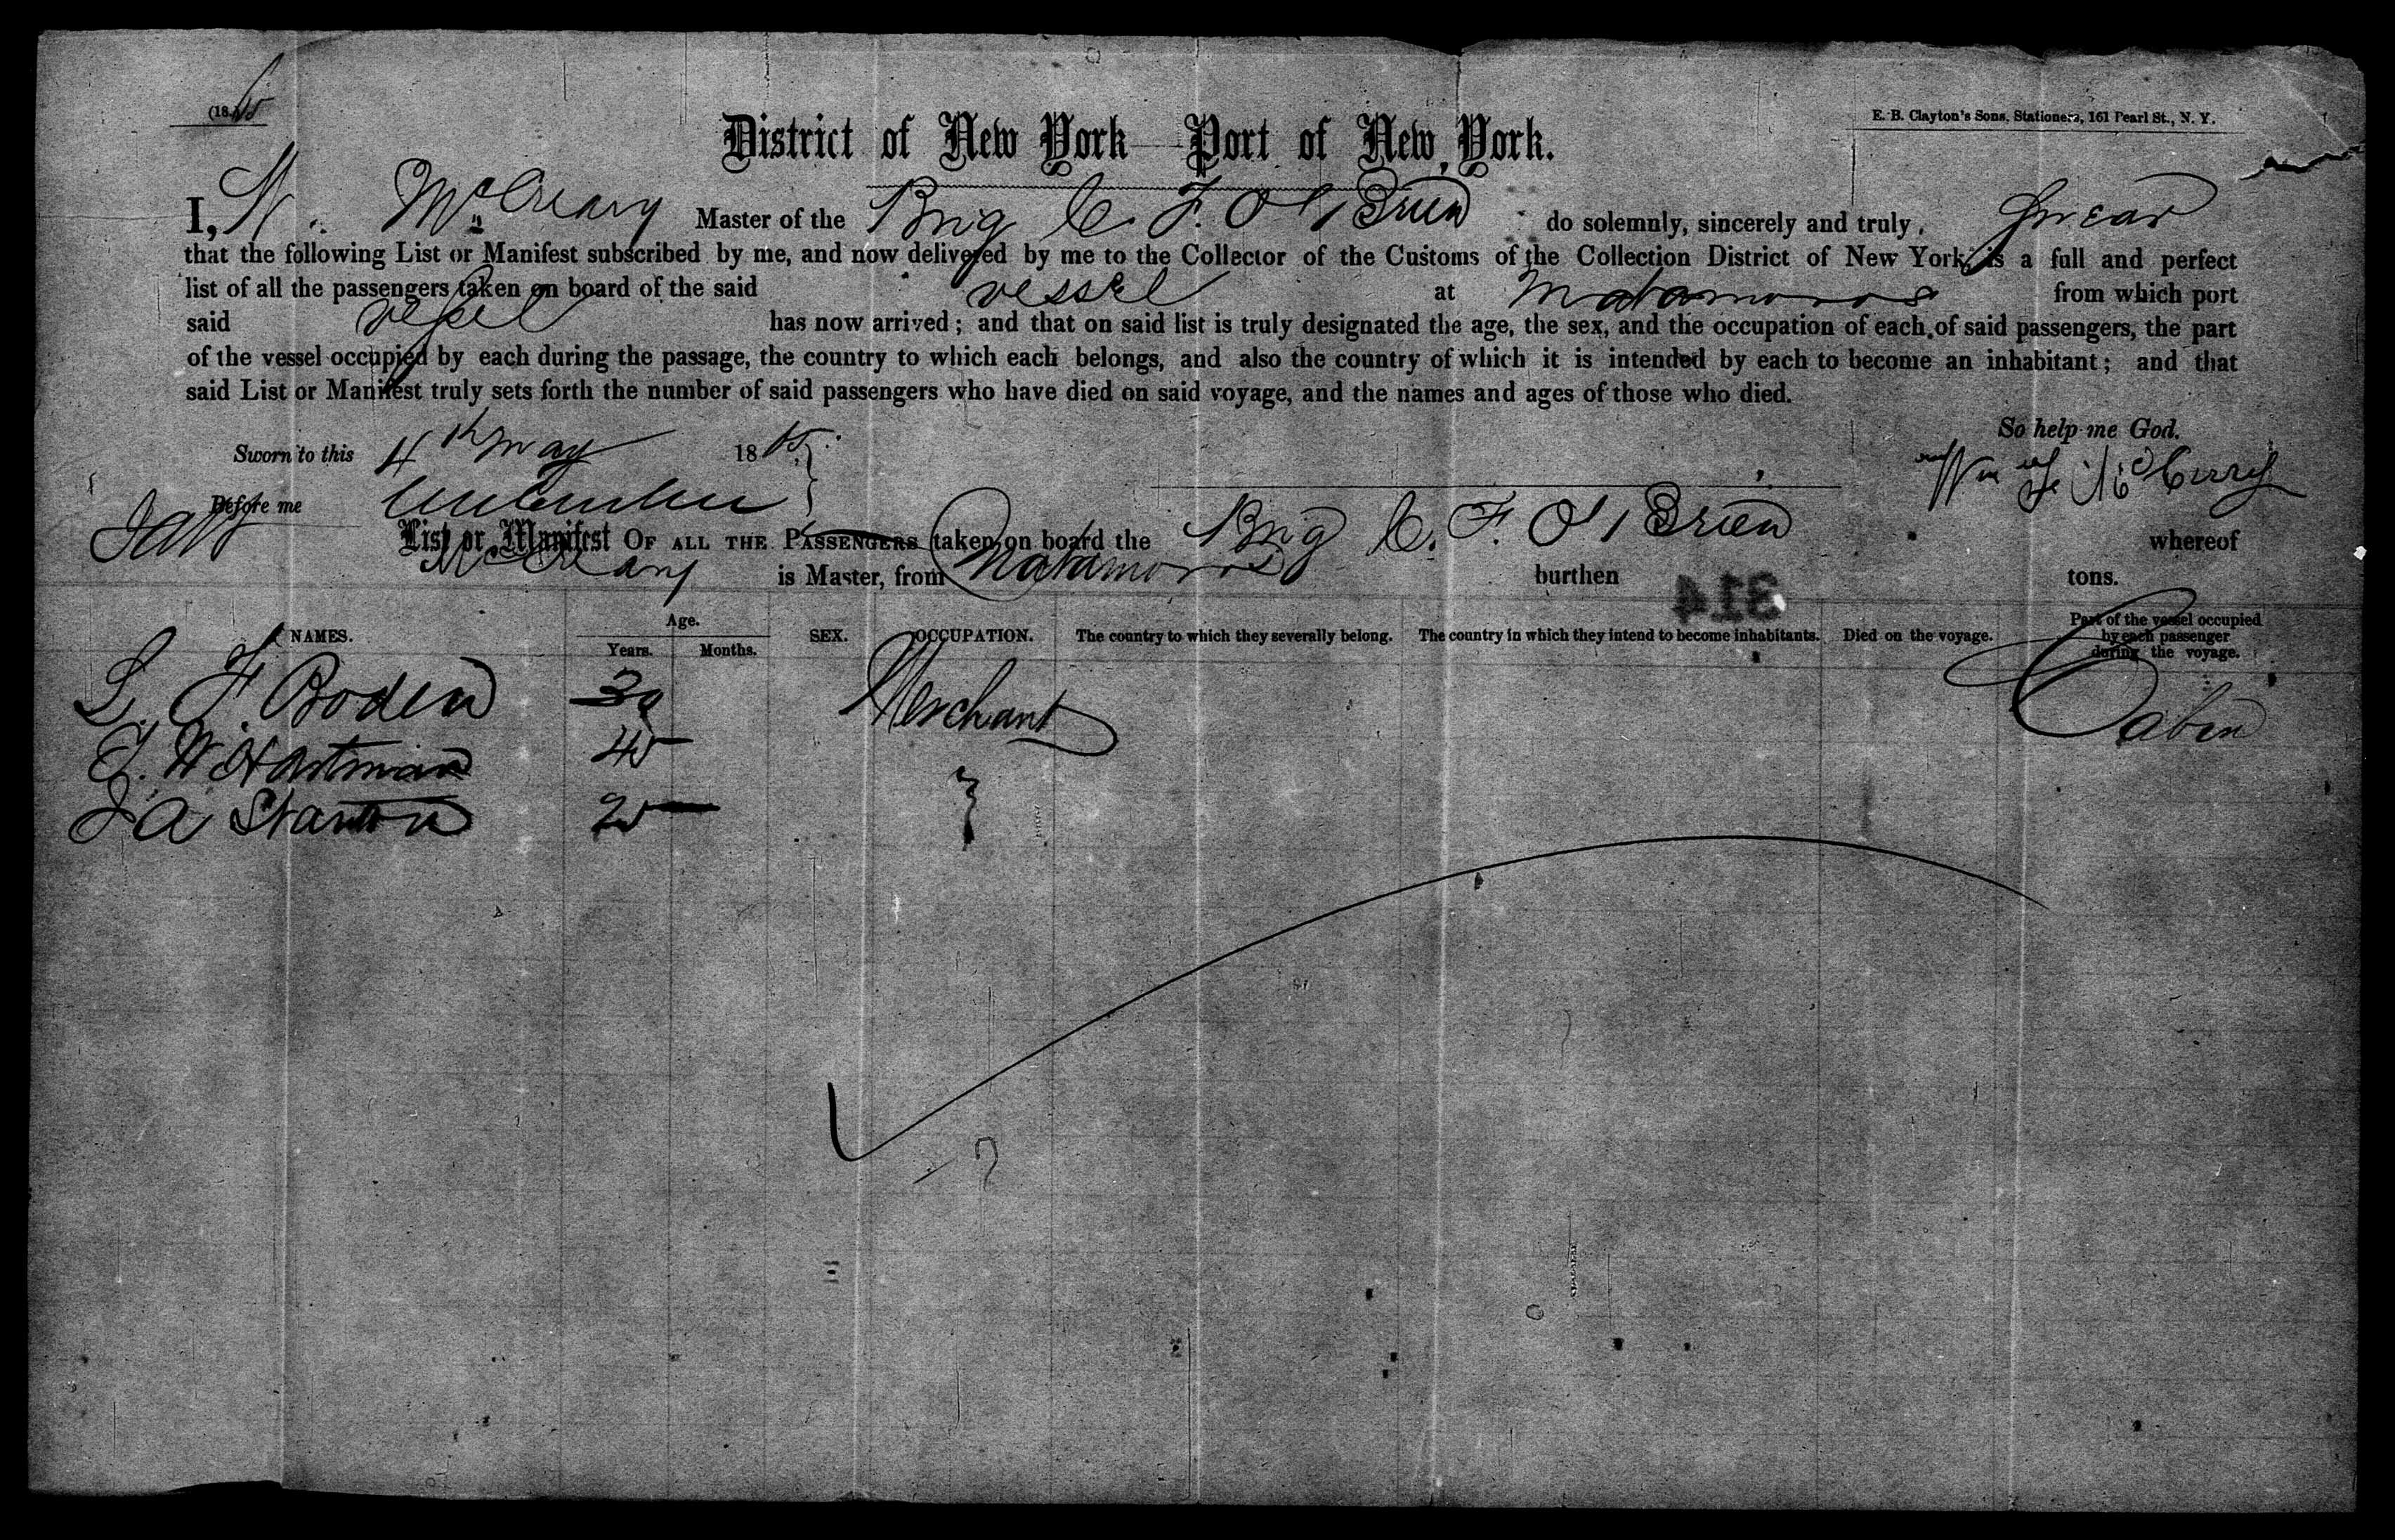 (1865
E. B. Clayton's Sons, Stationers, 161 Pearl St., N. Y.
District of New York—Port of New York.
I, W. McCreary Master of the Brig C. F. O'Brien do solemnly, sincerely and truly, Swear
that the following List or Manifest subscribed by me, and now delivered by me to the Collector of the Customs of the Collection District of New York, is a full and perfect
list of all the passengers taken on board of the said vessel at Matamoros from which port
said vessel has now arrived; and that on said list is truly designated the age, the sex, and the occupation of each of said passengers, the part
of the vessel occupied by each during the passage, the country to which each belongs, and also the country of which it is intended by each to become an inhabitant; and that
said List or Manifest truly sets forth the number of said passengers who have died on said voyage, and the names and ages of those who died.
So help me God.
Sworn to this 4th May 1865
Before me
List or Manifest OF ALL THE PASSENGERS taken on board the Brig C. F. O'Brien whereof
McCreary is Master, from Matamoros burthen tons.
314
NAMES. Age. Years. Months. SEX. OCCUPATION. The country to which they severally belong. The country in which they intend to become inhabitants. Died on the voyage. Part of the vessel occupied by each passenger during the voyage.
L. F. Boden 30 Merchant Cabin
J. W. Hartman 45
J A Stanton 25